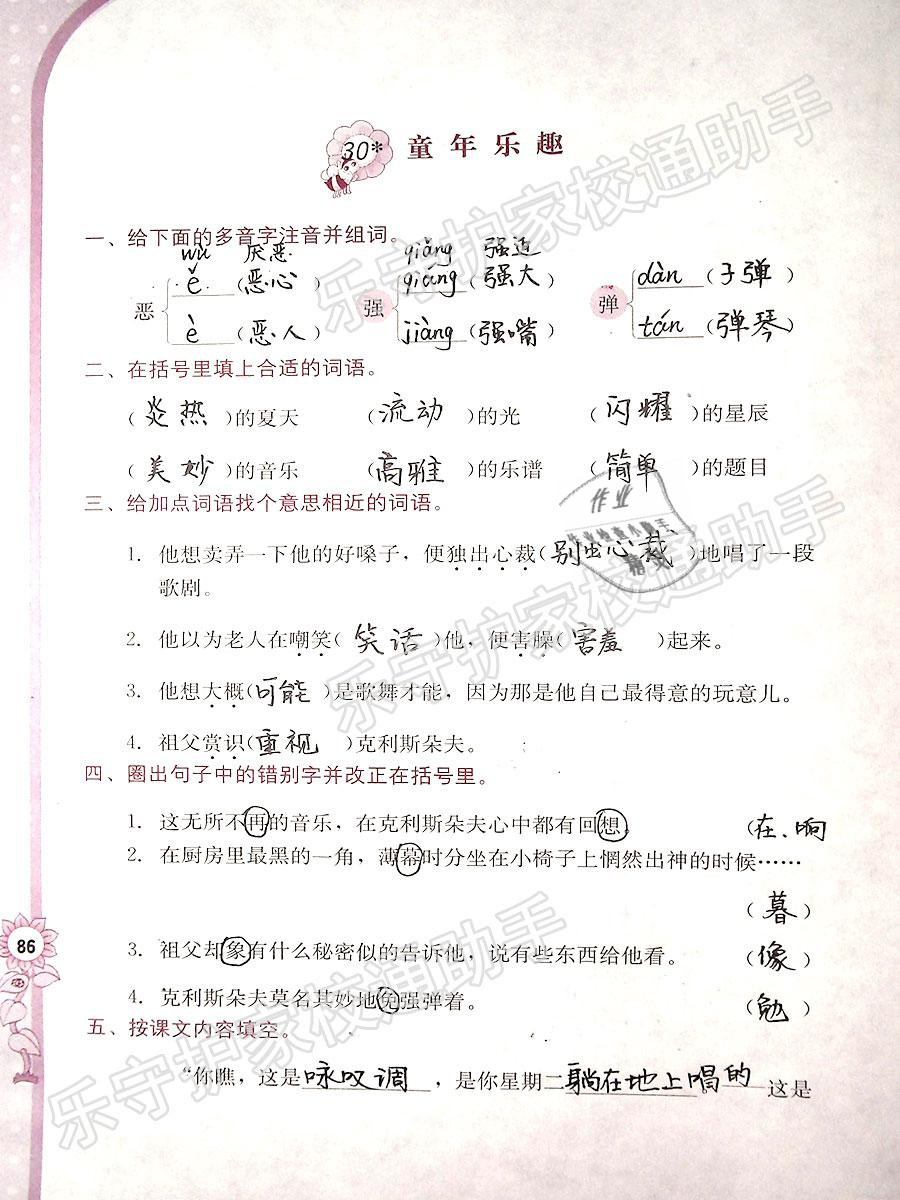 30* 童年乐趣
一、给下面的多音字注音并组词。
wù 厌恶 qiǎng 强迫
恶 ě (恶心) 强 qiáng (强大) 弹 dàn (子弹)
è (恶人) jiàng (强嘴) tán (弹琴)
二、在括号里填上合适的词语。
(炎热)的夏天 (流动)的光 (闪耀)的星辰
(美妙)的音乐 (高雅)的乐谱 (简单)的题目
作业
三、给加点词语找个意思相近的词语。
1. 他想卖弄一下他的好嗓子，便独出心裁(别出心裁)地唱了一段
歌剧。
2. 他以为老人在嘲笑(笑话)他，便害臊(害羞)起来。
3. 他想大概(可能)是歌舞才能，因为那是他自己最得意的玩意儿。
4. 祖父赏识(重视)克利斯朵夫。
四、圈出句子中的错别字并改正在括号里。
1. 这无所不再的音乐，在克利斯朵夫心中都有回想。 (在、响
2. 在厨房里最黑的一角，薄幕时分坐在小椅子上惘然出神的时候……
(暮)
3. 祖父却象有什么秘密似的告诉他，说有些东西给他看。 (像)
4. 克利斯朵夫莫名其妙地免强弹着。 (勉)
五、按课文内容填空。
“你瞧，这是咏叹调，是你星期二躺在地上唱的 这是
86
乐守护家校通助手
乐守护家校通助手
乐守护家校通助手
乐守护家校通助手